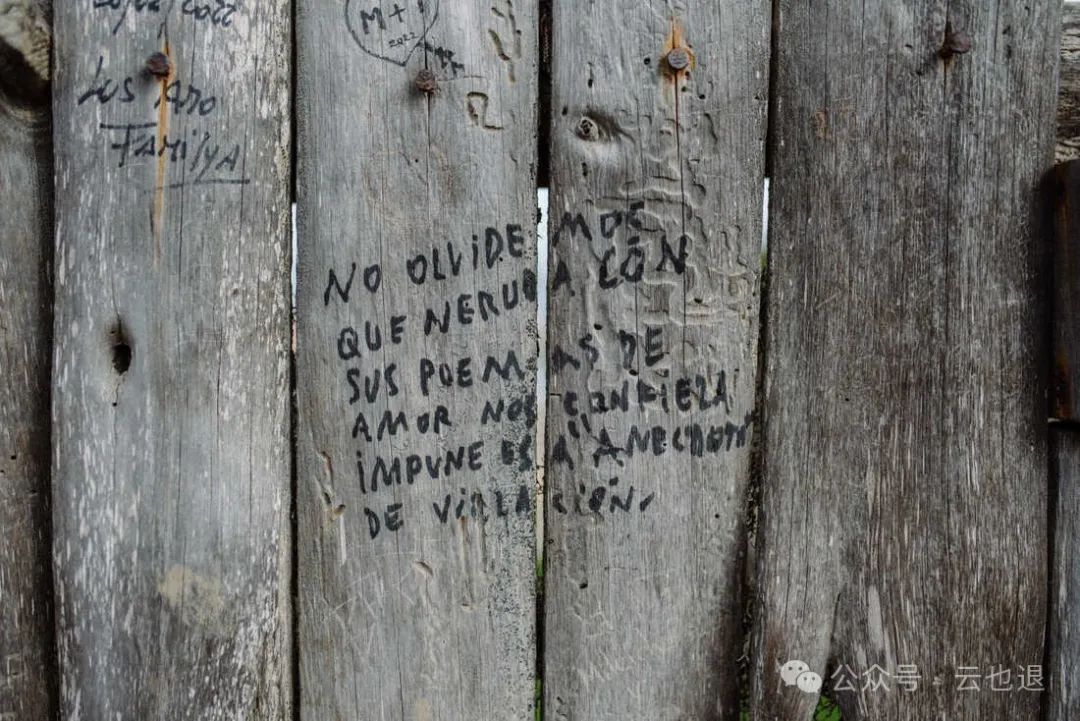 2022
M + 
2022
LOS 
FAMilyA
NO OLViDEMOS
QUE NERUDA CON
SUS POEMAS DE
AMOR NOS CONFIEZA
IMPUNE ESA "ANECDOTA"
DE VIOLACION.
公众号 · 云也退